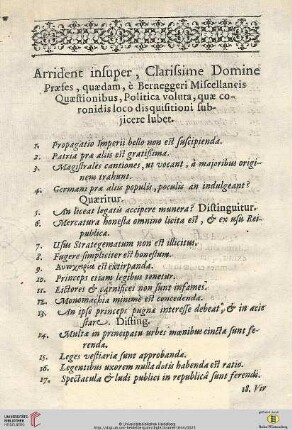 Arrident insuper, Clarissime Domine
Præses, quædam, è Berneggeri Miscellaneis
Quæstionibus, Politica voluta, quæ co-
ronidis loco disquisitioni sub-
jicere lubet.
1. Propagatio Imperii bello non est suscipienda.
2. Patria præ aliis est gratissima.
3. Magistrales cantiones, ut vocant, à majoribus origi-
nem trahunt.
4. Germani præ aliis populis, poculis an indulgeant?
Quæritur.
5. An liceat legatis accipere munera? Distinguitur.
6. Mercatura honesta omnino licita est, & ex usu Rei-
publicæ.
7. Usus Strategematum non est illicitus.
8. Fugere simpliciter est honestum.
9. est extirpanda.
10. Princeps etiam legibus tenetur.
11. Lictores & carnifices non sunt infames.
12. Monomachia minimè est concedenda.
13. An ipse princeps pugnæ interesse debeat, & in acie
stare. Disting.
14. Multæ in principatu urbes manibus cinctæ sunt fe-
renda.
15. Leges vestiariæ sunt approbandæ.
16. Legentibus uxorem nulla dotis habenda est ratio.
17. Spectacula & ludi publici in republicâ sunt ferendi.
18. Vir
UNIVERSITÄTS-
BIBLIOTHEK
HEIDELBERG
© Universitätsbibliothek Heidelberg
gefördert durch
Baden-Württemberg